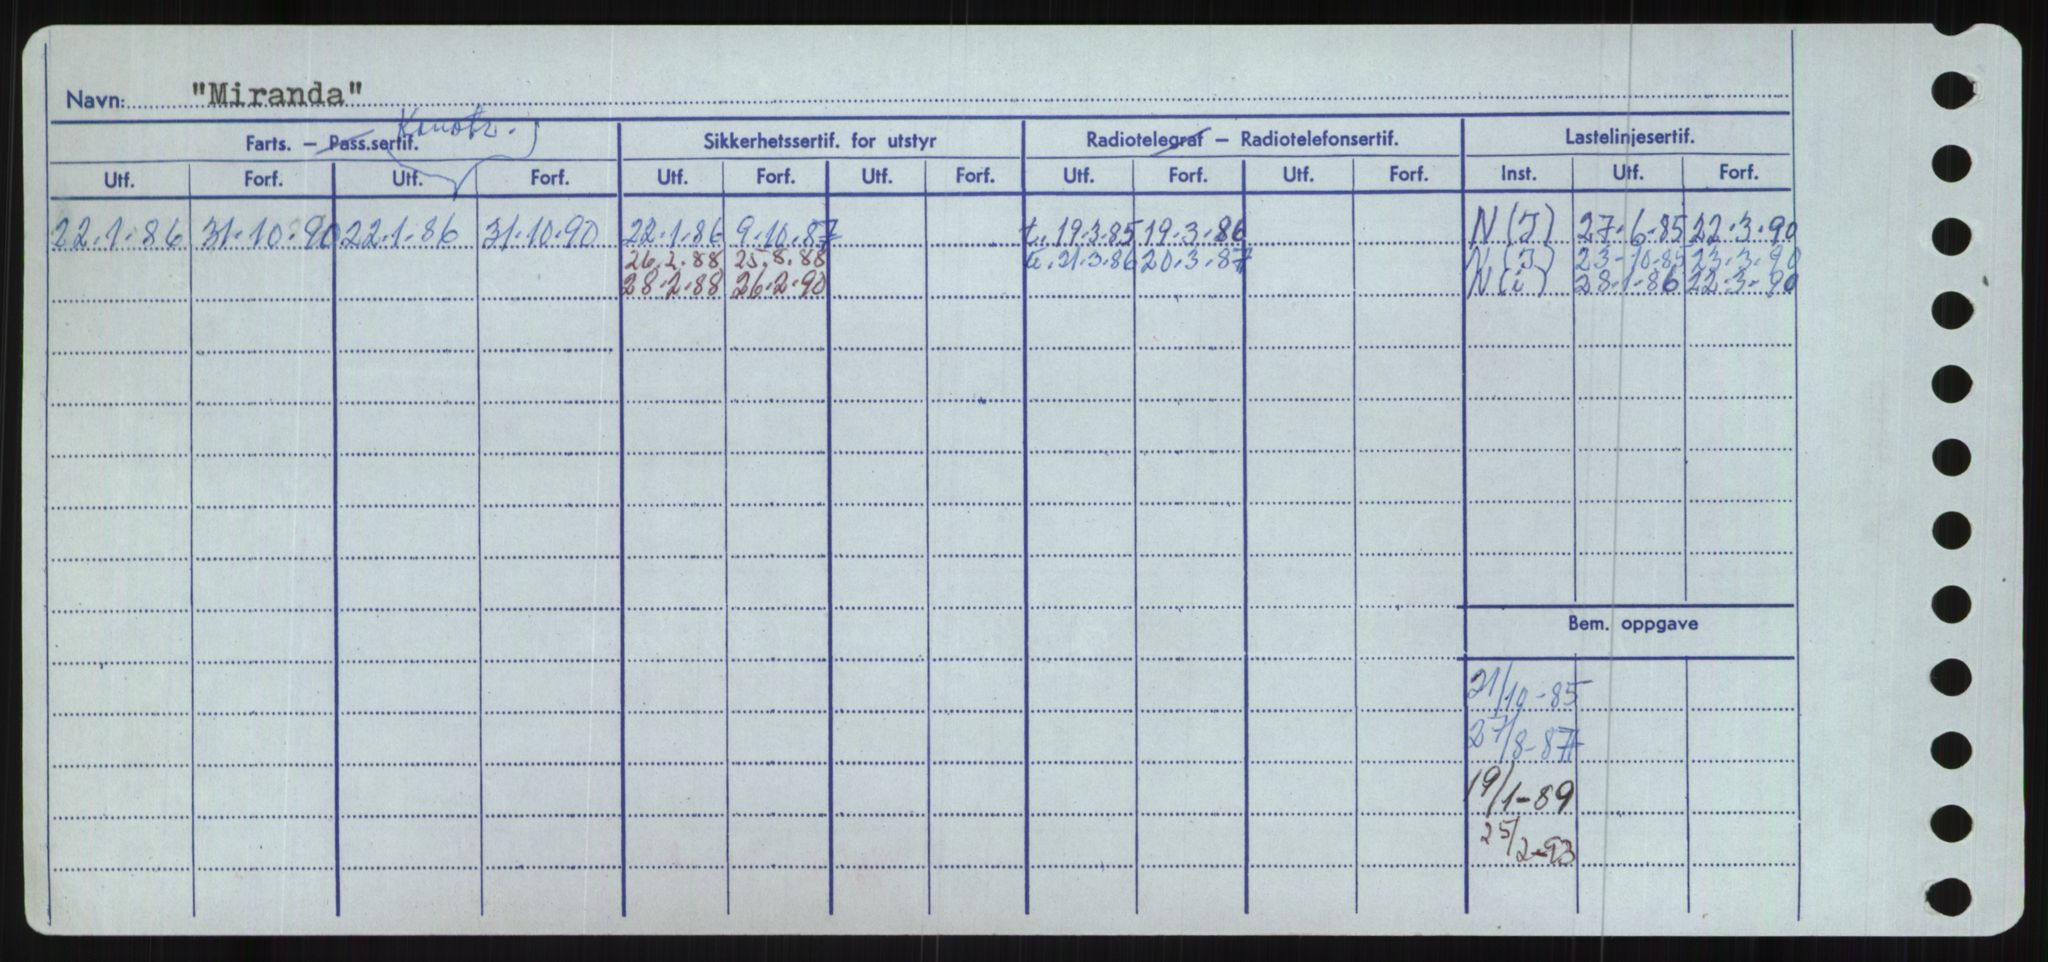 Navn: "Miranda"
Konstr.
Farts. — Pass.sertif. Sikkerhetssertif. for utstyr Radiotelegraf — Radiotelefonsertif. Lastelinjesertif.
Utf. Forf. Utf. Forf. Utf. Forf. Utf. Forf. Utf. Forf. Utf. Forf. Inst. Utf. Forf.
22.1.86 31.10.90 22.1.86 31.10.90 22.1.86 9.10.87 t. 19.3.85 19.3.86 N(I) 27.6.85 22.3.90
26.2.88 25.8.88 t. 21.3.86 20.3.87 N(I) 23.10.85 23.3.90
28.2.88 26.2.90 N(i) 28.1.86 22.3.90
Bem. oppgave
21/10-85
27/8-87
19/1-89
25/2-93